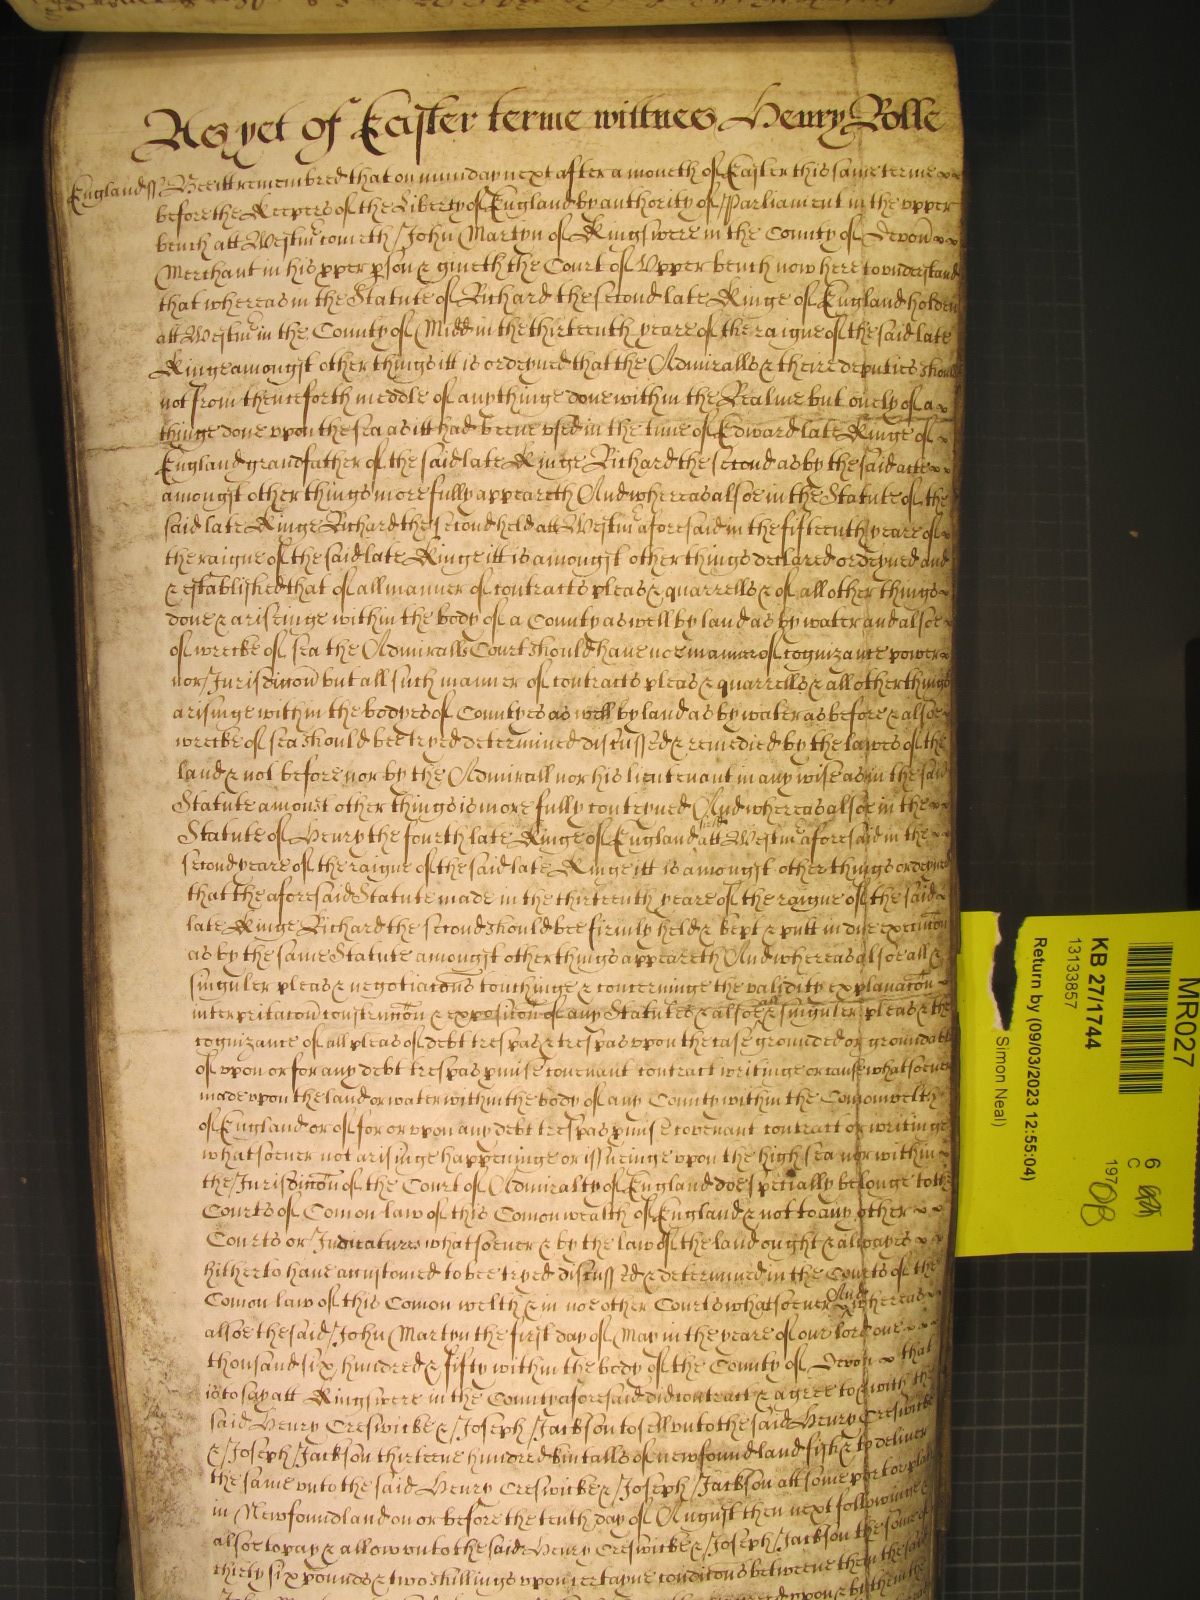 As yet of Easter terme wittnes Henry Rolle
England ss Bee itt remembred that on munday next after a moneth of Easter this same terme
before the Keepers of the Liberty of England by authority of Parliament in the upper
bench att Westm cometh John Martyn of Kingswere in the County of Devon
Merchant in his pper pson & giveth the Court of Upper bench now here to understand
that whereas in the Statute of Richard the second late Kinge of England holden
att Westm in the County of Midd in the thirteenth yeare of the raigne of the said late
Kinge amongst other things itt is ordeyned that the Admiralls & theire deputies should
not from thenceforth meddle of any thinge done within the Realme but onely of a
thinge done upon the sea as itt had beene used in the time of Edward late Kinge of
England grandfather of the said late Kinge Richard the second as by the said acte
amongst other things more fully appeareth And whereas alsoe in the Statute of the
said late Kinge Richard the second held att Westm aforesaid in the fifteenth yeare of
the raigne of the said late Kinge itt is amongst other things declared ordeyned and
& established that of all manner of contracts pleas & quarrells & of all other things
done & ariseinge within the body of a County as well by land as by water and alsoe
of wrecke of sea the Admiralls Court should have noe manner of cognizance power
nor Jurisdiccon but all such manner of contracts pleas & quarrells & all other things
arisinge within the bodyes of Countyes as well by land as by water as before & alsoe
wrecke of sea should bee tryed determined discussed & remedied by the lawes of the
land & not before nor by the Admirall nor his lieutenant in any wise as in the said
Statute amonst other things is more fully conteyned And whereas alsoe in the
Statute of Henry the fourth late Kinge of England held att Westm aforesaid in the
second yeare of the raigne of the said late Kinge itt is amongst other things ordeyned
that the aforesaid Statute made in the thirteenth yeare of the raigne of the said
late Kinge Richard the second should bee firmly held & kept & putt in due execucon
as by the same Statute amongst other things appeareth And whereas alsoe all &
singuler pleas & negotiacons touchinge & concerninge the validity explanacon
interpritacon construccon & exposicon of any Statutes & alsoe all & singuler pleas & the
cognizance of all pleas of debt trespas & trespas upon the case grounded or groundable
of upon or for any debt trespas pmise covenant contract writinge or cause whatsoever
made upon the land or water within the body of any County within the Comonwelth
of England or of for or upon any debt trespas pmise covenant contract or writinge
whatsoever not arisinge happeninge or issueinge upon the high sea nor within
the Jurisdiccon of the Court of Admiralty of England doe specially belonge to the
Courts of Comon law of this Comonwealth of England & not to any other
Courts or Judicatures whatsoever & by the law of the land ought & alwayes
hitherto have accustomed to bee tryed discussed & determined in the Courts of the
Comon law of this Comon welth & in noe other Courts whatsoever And whereas
alsoe the said John Martyn the first day of May in the yeare of our lord one
thousand six hundred & fifty within the body of the County of Devon that
is to say att Kingswere in the County aforesaid did contract & agree to & with the
said Henry Creswicke & Joseph Jackson to sell unto the said Henry Creswicke
& Joseph Jackson thirteene hundred kintalls of newfoundland fish & to deliver
the same unto the said Henry Creswicke & Joseph Jackson att some port or place
in Newfoundland on or before the tenth day of August then next followinge &
alsoe to pay & allow unto the said Henry Creswicke & Joseph Jackson the some of
thirty six pounds & two shillings upon certayne condicons betweene them the said
MR027
KB 27/1744
13133857
Return by (09/03/2023 12:55:04)
Simon Neal)
6
C
197